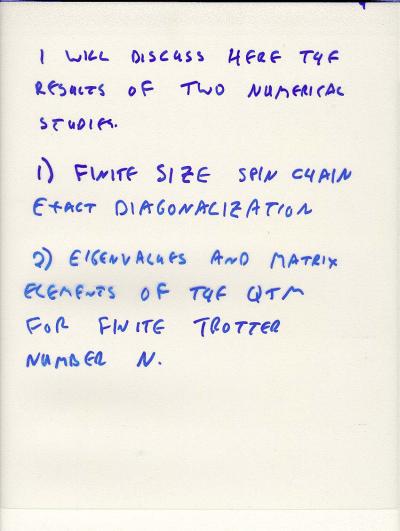 I WILL DISCUSS HERE THE
RESULTS OF TWO NUMERICAL
STUDIES.
1) FINITE SIZE SPIN CHAIN
EXACT DIAGONALIZATION
2) EIGENVALUES AND MATRIX
ELEMENTS OF THE QTM
FOR FINITE TROTTER
NUMBER N.